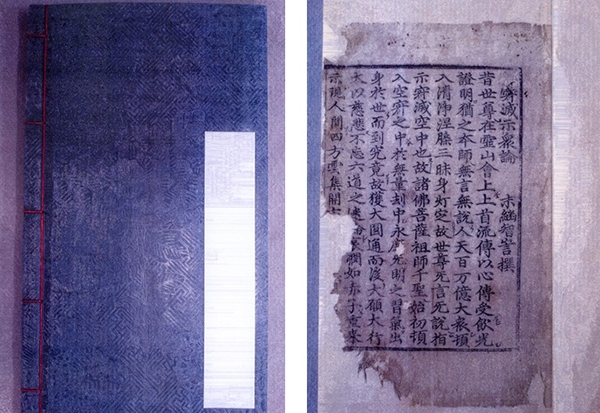 寂滅示衆論 末 智訔撰
昔世尊在靈山會上上首流傳以心傳受飮光
證明猶之本師無言無説人天百万億大衆頂
入清淨涅槃三昧身 空故世尊无言无説指
示寂滅空中也故諸佛菩薩祖師千聖始初頂
入空寂之中於無量刼中永 无明之習氣出
身於世而到究竟故獲大圓通而度大願大行
大以慈悲不忘六道之迷 憫如赤子重來
示現人間四方雲集開